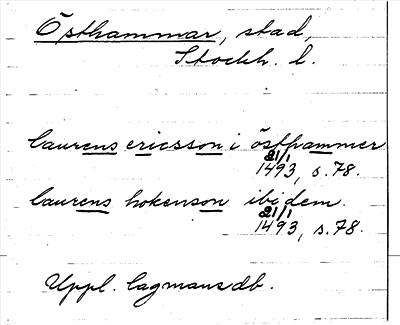 Östhammar, stad,
Stockh. l.
laurens ericsson i östhammer
21/1
1493, s. 78.
laurens hokenson ibidem.
21/1
1493, s. 78.
Uppl. lagmansdb.